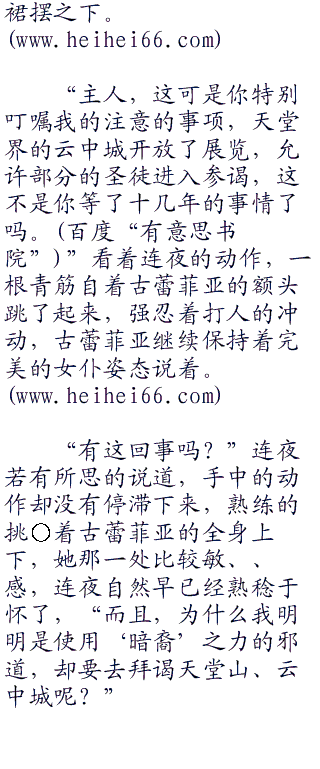 裙摆之下。
(www.heihei66.com)
“主人，这可是你特别
叮嘱我的注意的事项，天堂
界的云中城开放了展览，允
许部分的圣徒进入参谒，这
不是你等了十几年的事情了
吗。(百度“有意思书
院”)”看着连夜的动作，一
根青筋自着古蕾菲亚的额头
跳了起来，强忍着打人的冲
动，古蕾菲亚继续保持着完
美的女仆姿态说着。
(www.heihei66.com)
“有这回事吗？”连夜
若有所思的说道，手中的动
作却没有停滞下来，熟练的
挑○着古蕾菲亚的全身上
下，她那一处比较敏、、
感，连夜自然早已经熟稔于
怀了，“而且，为什么我明
明是使用‘暗裔’之力的邪
道，却要去拜谒天堂山、云
中城呢？”